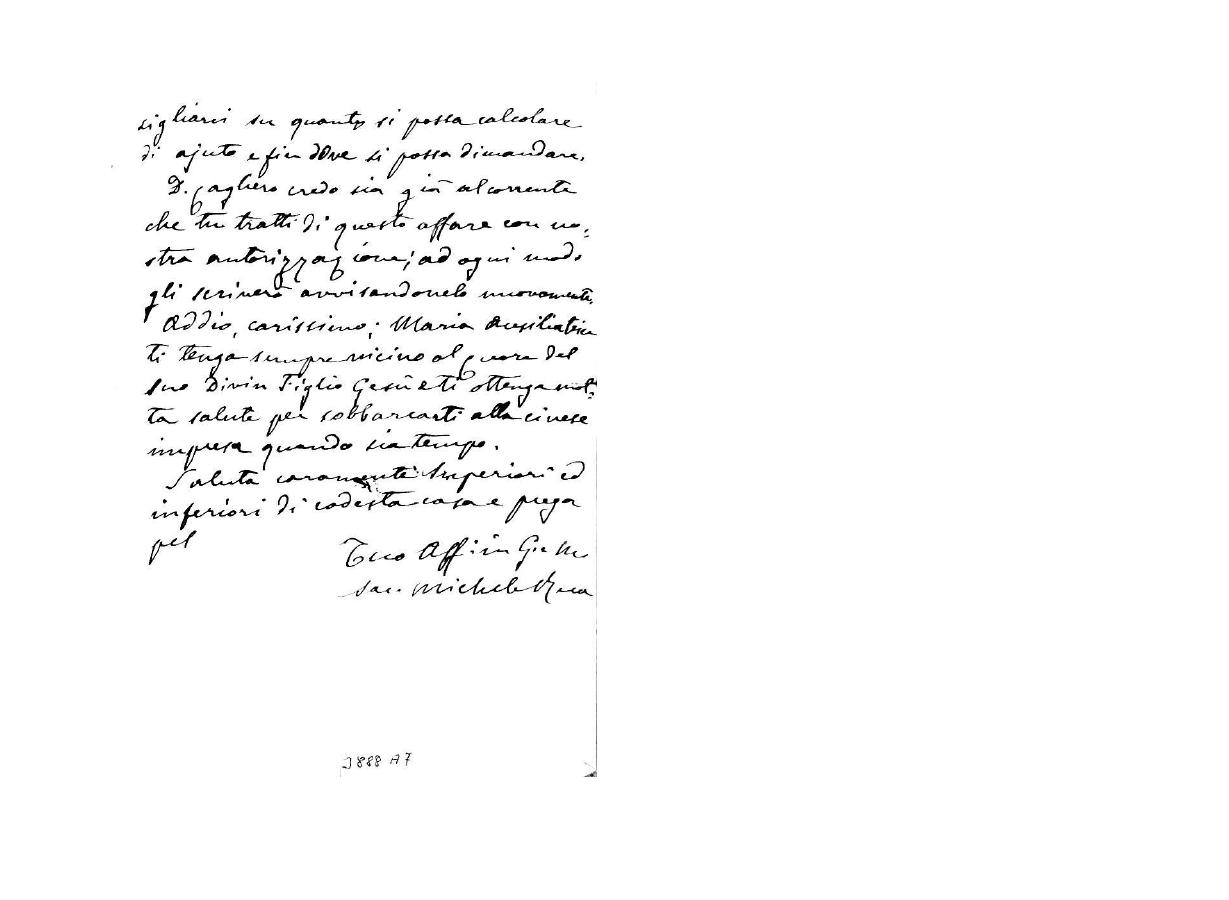 sigliarci su quanto si possa calcolare
di ajuto e fin dove si possa dimandare.
D. Cagliero credo sia già al corrente
che tu tratti di questo affare con no-
stra autorizzazione; ad ogni modo
gli scriverò avvisandonelo nuovamente.
Addio, carissimo; Maria Ausiliatrice
ti tenga sempre vicino al Cuore del
suo Divin Figlio Gesù e ti ottenga mol-
ta salute per sobbarcarti alla cinese
impresa quando sia tempo.
Saluta caramente Superiori ed
inferiori di codesta casa e prega
pel
Tuo Aff.im G. e M.
Sac. Michele Rua
3888 A7